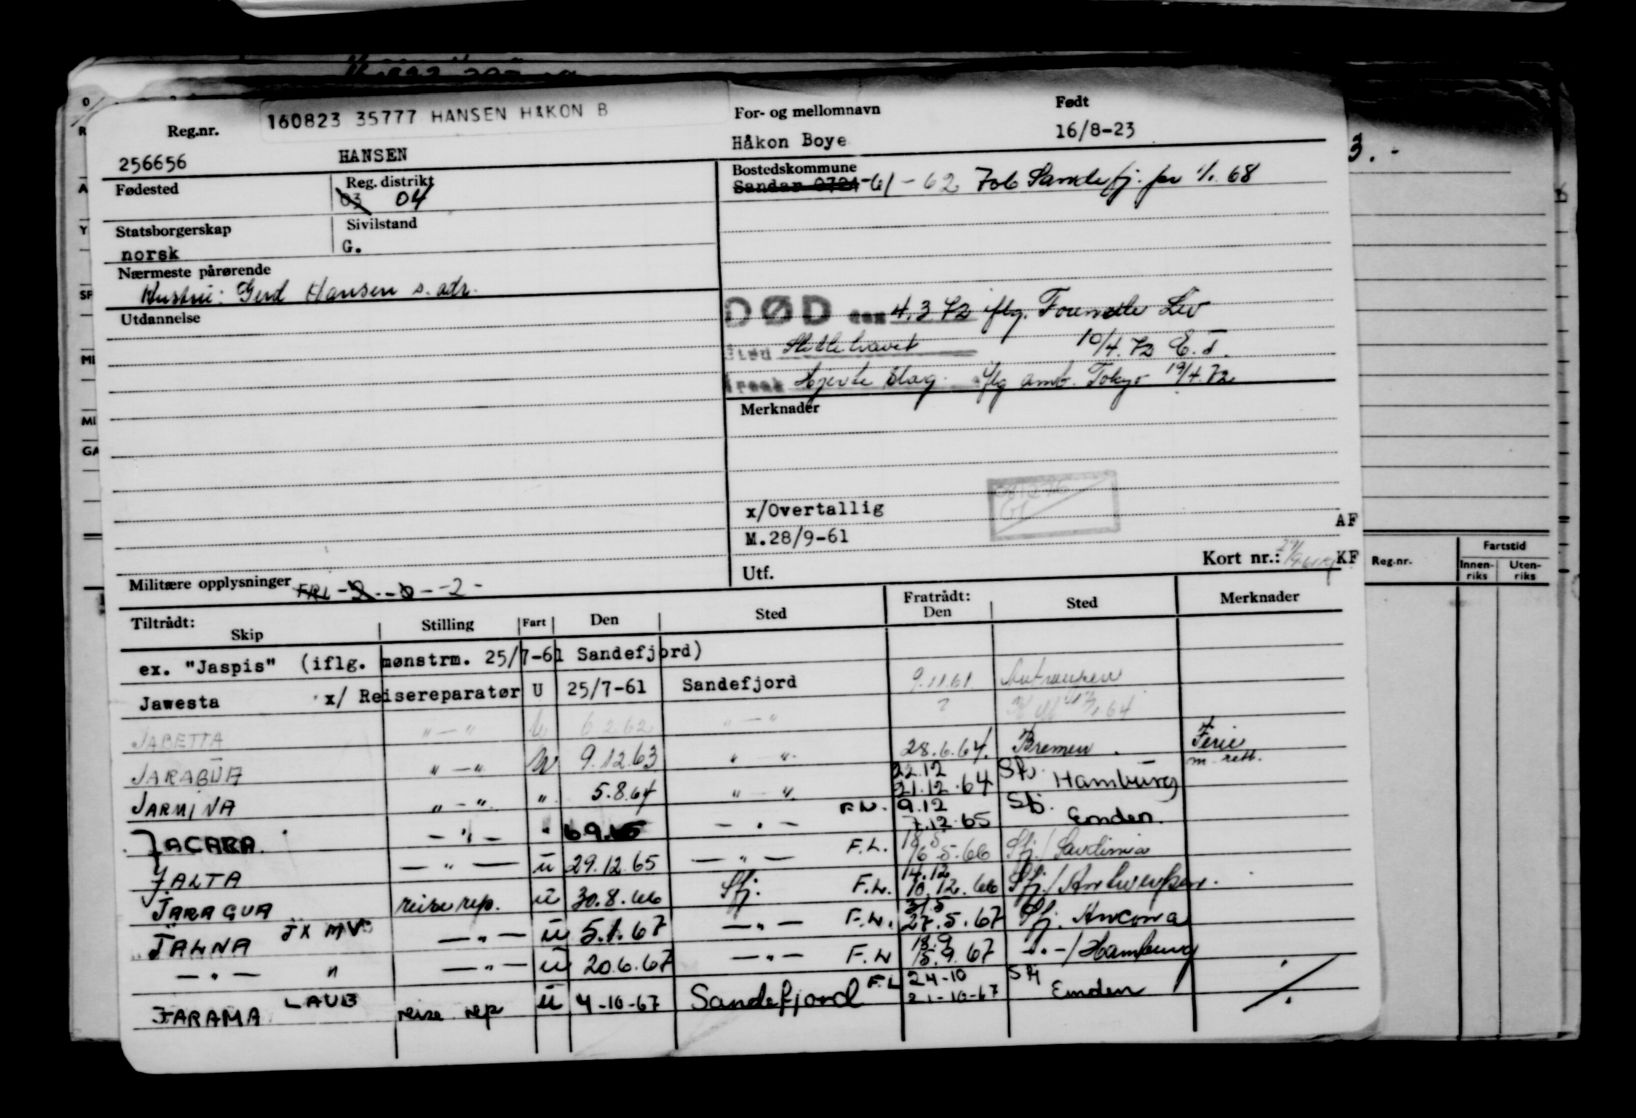 160823 35777 HANSEN HAKON B
Reg.nr.
For- og mellomnavn
Født
256656
HANSEN
Håkon Boye
16/8-23
Fødested
Reg. distrikt
03 04
Bostedskommune
Sandar 0724-61-62 Job Sandefj. pr 1/1. 68
Statsborgerskap
Sivilstand
norsk
G.
Nærmeste pårørende
Hustru: Gerd Hansen s. adr.
Utdannelse
DØD den 4.3 72 iflg.
Sted
10/4. 72
Årsak Hjerte slag. iflg amb. Tokyo 19/4.72
Merknader
x/Overtallig
M.28/9-61
AF
Kort nr.:
KF
Reg.nr.
Fartstid
Innen-riks
Uten-riks
Militære opplysninger
Utf.
Tiltrådt:
Skip
Stilling
Fart
Den
Sted
Fratrådt:
Den
Sted
Merknader
ex. "Jaspis" (iflg. mønstrm. 25/7-61 Sandefjord)
Jawesta x/ Reisereparatør U 25/7-61 Sandefjord 9.11.61 Antwerpen
JABETTA " — " U 6.2.62 " — " ?
JARABUA " — " U 9.12.63 " " 28.6.64. Bremen. Ferie m. rett.
JARMINA " — " " 5.8.64 " — " 22.12 21.12.64 Sfj. Hamburg
JACARA — " — " — " — F.L. 9.12 7.12.65 Sfj. Emden.
JALTA — " — U 29.12.65 — " — F.L. 5.66 Sfj./ Sardinia
JARAGUA reise rep. U 30.8.66 Sfj. F.L. 14.12 10.12.66 Sfj./ Antwerpen.
JALNA JX MV — " — U 5.1.67 — " — F.L. 31/5 27.5.67 Sfj. Ancona
— " — " — " — U 20.6.67 — " — F.L. 18.9 15.9.67 — " —/ Hamburg
JARAMA LAUB reise rep U 4-10-67 Sandefjord F.L 24-10 21-10-67 Sfj Emden